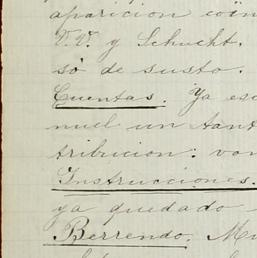 aparicion coin
V. V. y Schucht.
só de susto.
Cuentas. Ya esc
nuel un tant
tribucion: von
Instrucciones.
ya quedado
Berrendo. Mu